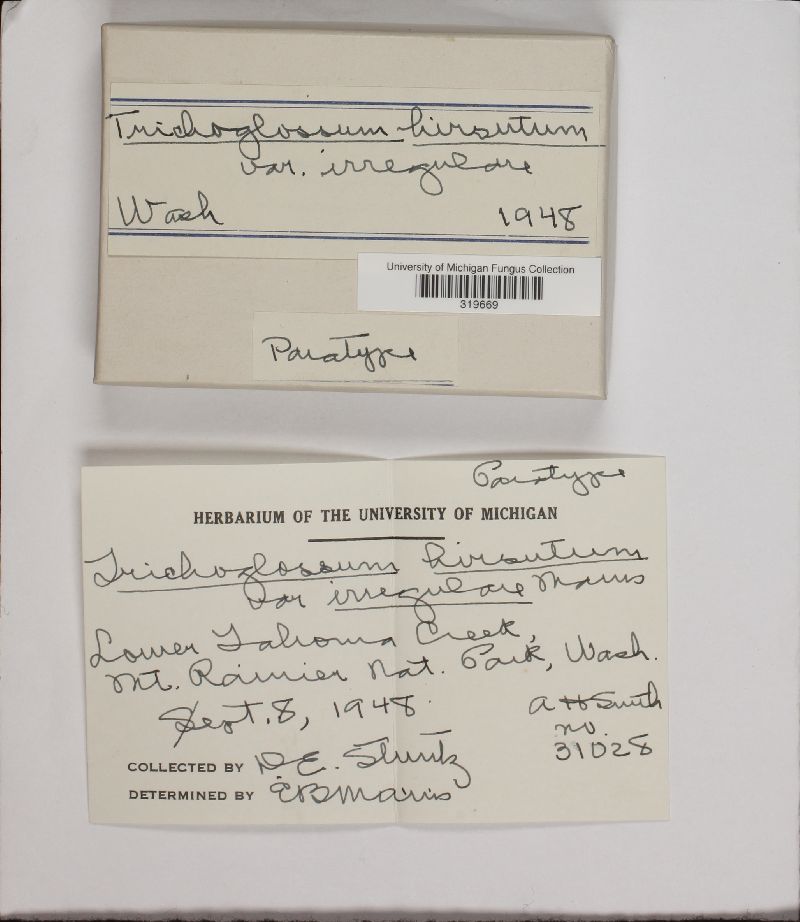 Trichoglossum hirsutum
var. irregulare
Wash 1948
University of Michigan Fungus Collection
319669
Paratype
Paratype
HERBARIUM OF THE UNIVERSITY OF MICHIGAN
Trichoglossum hirsutum
var irregulare Mains
Lower Tahoma Creek,
Mt. Rainier Nat. Park, Wash.
Sept. 8, 1948
A H Smith
no.
31028
COLLECTED BY D. E. Stuntz
DETERMINED BY E B Mains